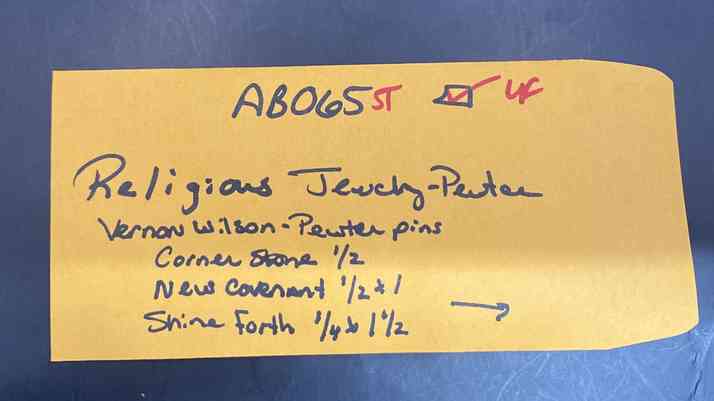 AB065 ST ☑ 
Religious Jewelry-Pewter
Vernon Wilson-Pewter pins
Corner Stone 1/2
New Covenant 1/2 x 1
Shine Forth 1/4 x 1 1/2 →